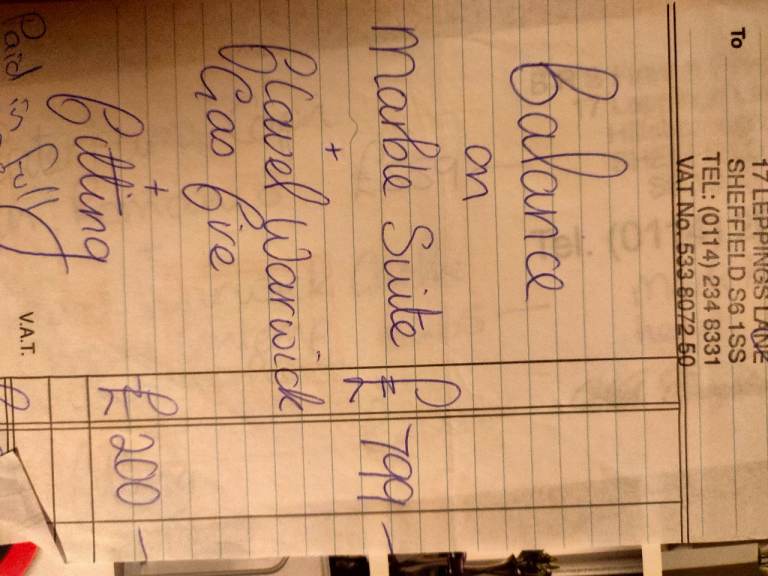 17 LEPPINGS LANE
SHEFFIELD S6 1SS
TEL: (0114) 234 8331
VAT No. 533 8072 50
To
Balance
on
Marble Suite £ 799 -
+
Flavel Warwick
Gas Fire
+
Fitting £ 200 -
Paid in full
V.A.T. £